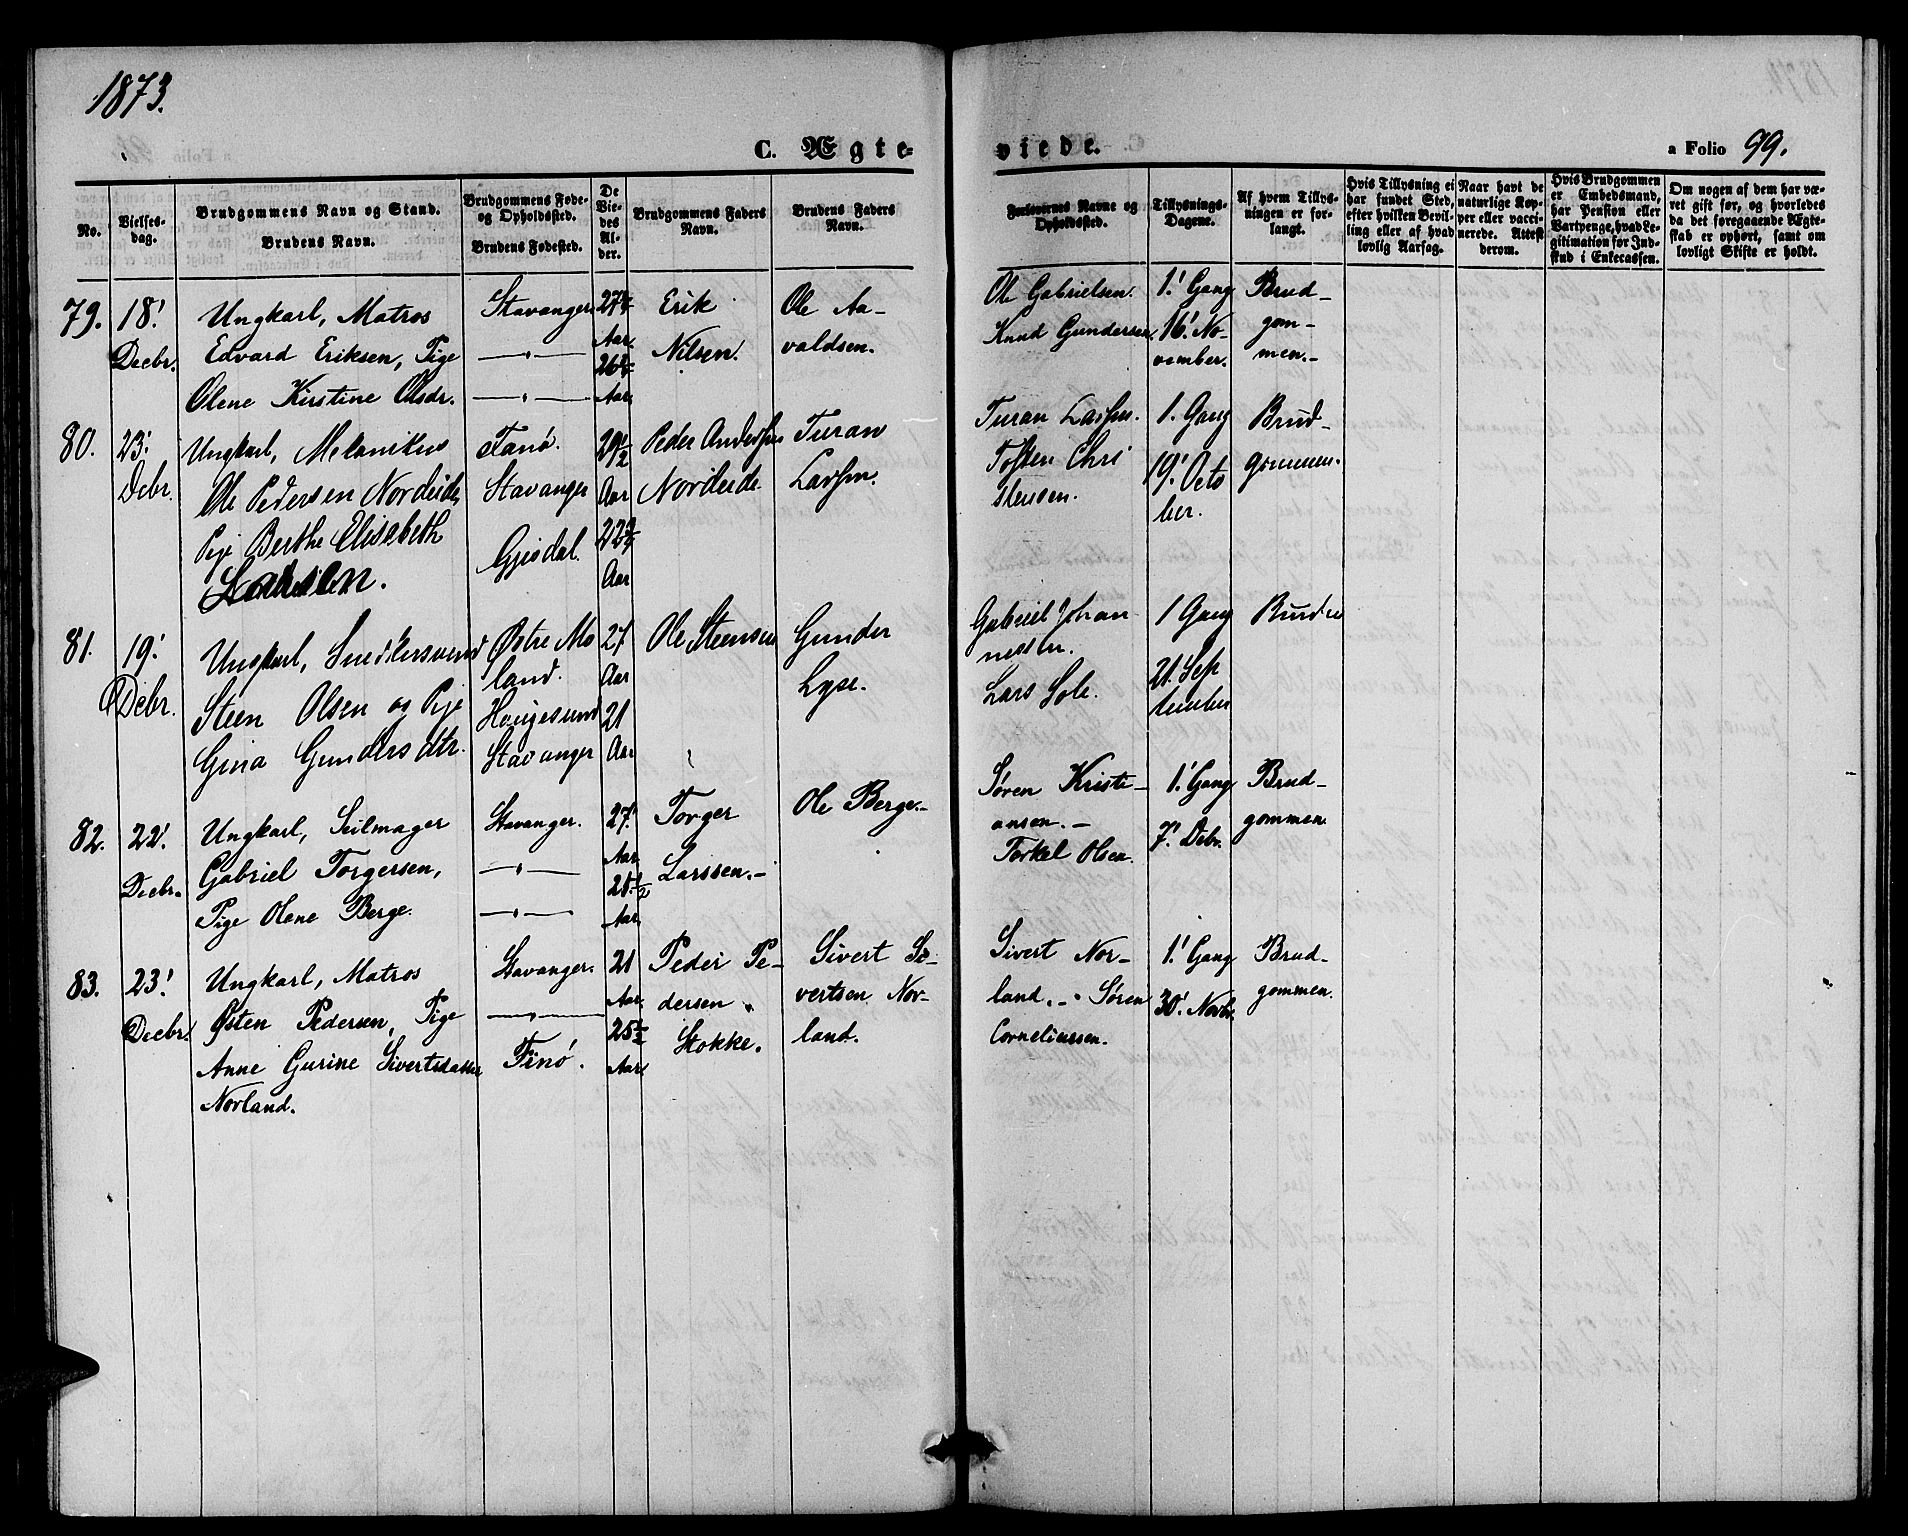 1873.
C. Ægte-
viede.
a Folio 99.
No.
Vielses-
dag.
Brudgommens Navn og Stand.
Brudens Navn.
Brudgommens Føde-
og Opholdssted.
Brudens Fødested.
De
Vie-
des
Al-
der.
Brudgommens Faders
Navn.
Brudens Faders
Navn.
Forlovernes Navne og
Opholdssted.
Tillysnings-
Dagene.
Af hvem Tillys-
ningen er for-
langt.
Hvis Tillysning ei
har fundet Sted,
efter hvilken Bevil-
ling eller af hvad
lovlig Aarsag.
Naar havt de
naturlige Kop-
per eller vacci-
nerede. Attest
derom.
Hvis Brudgommen
er Embedsmand,
har Pension eller
Vartpenge, hvad Le-
gitimation for Ind-
skud i Enkecassen.
Om nogen af dem har væ-
ret gift før, og hvorledes
da det foregaaende Ægte-
skab er ophørt, samt om
lovligt Skifte er holdt.
79.
18!
Decbr.
Ungkarl, Matros
Edvard Eriksen, Pige
Olene Kirstine Olsdr.
Stavanger
Aar
Aar
Erik
Nilsen.
Ole Aa-
valdsen.
Ol Gabrielsen.
Knud Gundersen.
1! Gang
16! No-
vember.
Brud-
gom-
men.-
80.
23!
Debr.
Ungkarl, Mekanikus
Ole Pedersen Nordeide
Pige Berthe Elisabeth
Larsen.
Fanø.
Stavanger
Gjesdal.
29 1/2
Aar
22 3/4
Aar
Peder Andersen
Nordeide
Turan
Larsen.
Turan Larsen.
Tosten Chri
stensen.
1. Gang
19! Octo
ber.
Brud-
gommen.
81.
19!
Debr.
Ungkarl, Snedkersvend
Steen Olsen og Pige
Gina Gundersdtr.
Østre Mo
land.
Haugesund
Stavanger
27
Aar
21
Aar
Ole Steensen
Gunder
Lyse.
Gabriel Johan
nessen.
Lars Sole.
1 Gang
21. Sep
tember
Bruden
82.
22!
Decbr.
Ungkarl, Seilmager
Gabriel Torgersen,
Pige Olene Berge.
Stavanger.
27!
Aar
21 1/2
Aar
Torger
Larssen.-
Ole Berge.-
Søren Kristi-
ansen.-
Torkel Olsen.
1! Gang
7! Debr.
Brud-
gommen.
83.
23!
Decbr.
Ungkarl, Matros
Østen Pedersen, Pige
Anne Gurine Sivertsdatter
Norland.
Stavanger.
Finø.
21
Aar
25 1/2
Aar
Peder Pe-
dersen
Stokke.
Sivert Si-
vertsen Nor-
land.
Sivert Nor-
land.- Søren
Corneliussen.
1! Gang
30! Novbr.
Brud-
gommen.